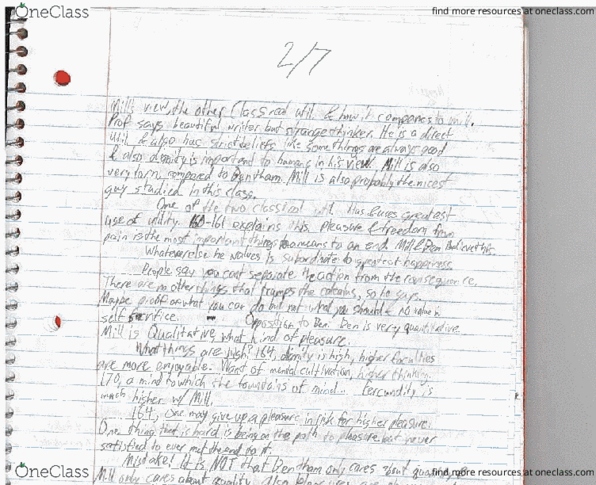 OneClass
find more resources at oneclass.com
2/7
Mill's view, the other Classical util. & how it compares to
Prof says beautiful writer but strange thinker. He is a direct
Util & also has strict beliefs like some things are always good
& also dignity is important to humans in his view. Mill is also
very compared to Bentham. Mill is also probably the nicest
guy studied in this class.
One of the two classical util. Has greatest
use of utility. 160-161 explains this. Pleasure & freedom from
pain is the most important things to a means to an end. Mill & Ben believe this.
Whatever else he values is subordinate to greatest happiness.
People say you can't separate the action from the consequence.
There are no other things that tramps the calculus, so he says.
Maybe proof of what you can do but not what you should & no value in
self sacrifice. - Opposition to Ben. Ben is very quantitative
Mill is Qualitative, what kind of pleasure.
What things are high? 164, dignity is high, higher faculties
are more enjoyable. Want of mental cultivation, higher thinking.
170, a mind to which the fountains of mind... Fecundity, is
much higher w/ Mill.
164, one may give up a pleasure in risk for higher pleasure.
One thing that is hard is being on the path to pleasure but never
satisfied to ever met the end to it.
Mistake! It is NOT that Bentham only cares about
Mill only cares about quality. Also
OneClass
find more resources at oneclass.com